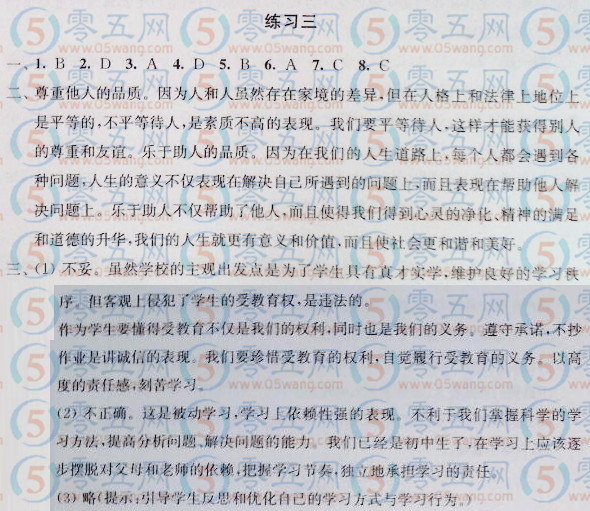 练习三
一、1. B 2. D 3. A 4. D 5. B 6. A 7. C 8. C
二、尊重他人的品质。因为人和人虽然存在家境的差异,但在人格上和法律上地位上
是平等的,不平等待人,是素质不高的表现。我们要平等待人,这样才能获得别人
的尊重和友谊。乐于助人的品质。因为在我们的人生道路上,每个人都会遇到各
种问题,人生的意义不仅表现在解决自己所遇到的问题上,而且表现在帮助他人解
决问题上。乐于助人不仅帮助了他人,而且使得我们得到心灵的净化、精神的满足
和道德的升华,我们的人生就更有意义和价值,而且使社会更和谐和美好。
三、(1) 不妥。虽然学校的主观出发点是为了学生具有真才实学,维护良好的学习秩
序。但客观上侵犯了学生的受教育权,是违法的。
作为学生要懂得受教育不仅是我们的权利,同时也是我们的义务。遵守承诺,不抄
作业是讲诚信的表现。我们要珍惜受教育的权利,自觉履行受教育的义务。以高
度的责任感,刻苦学习。
(2) 不正确。这是被动学习,学习上依赖性强的表现。不利于我们掌握科学的学
习方法,提高分析问题、解决问题的能力。我们已经是初中生了,在学习上应该逐
步摆脱对父母和老师的依赖,把握学习节奏,独立地承担学习的责任。
(3) 略(提示:引导学生反思和优化自己的学习方式与学习行为。)
零五网
www.05wang.com